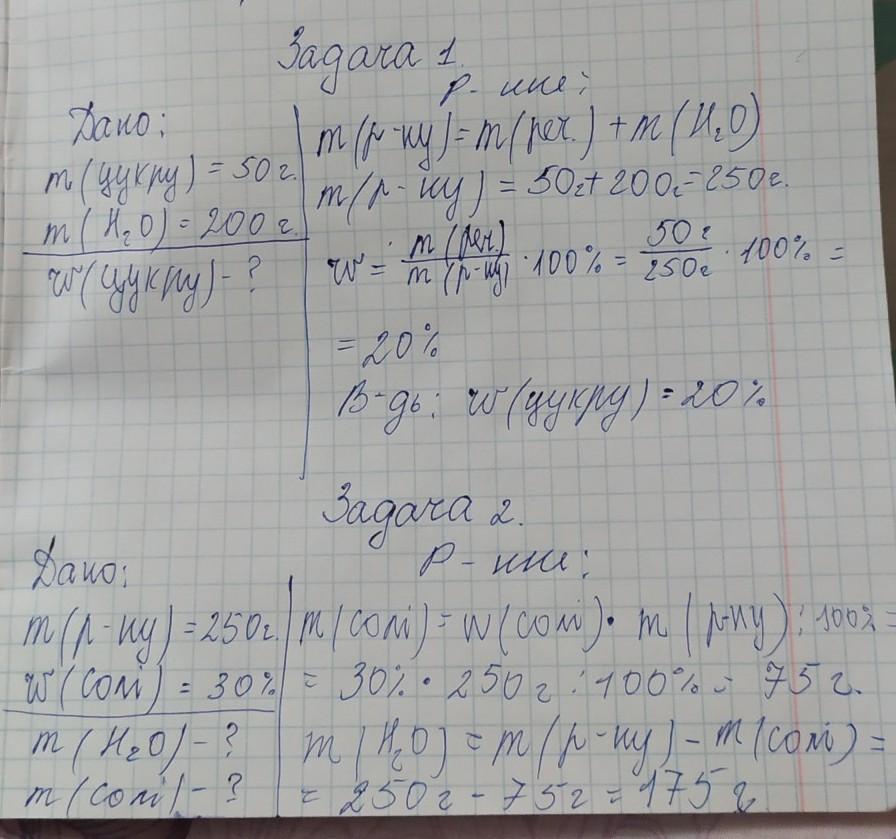 Задача 1.
Дано:
m(цукру) = 50 г.
m(H₂O) = 200 г.
w(цукру) - ?
Р-ння:
m(р-ну) = m(реч.) + m(H₂O)
m(р-ну) = 50г + 200г = 250г.
w = m(реч.) / m(р-ну) · 100% = 50г / 250г · 100% =
= 20%
В-дь: w(цукру) = 20%
Задача 2.
Дано:
m(р-ну) = 250г.
w(солі) = 30%
m(H₂O) - ?
m(солі) - ?
Р-ння:
m(солі) = w(солі) · m(р-ну) : 100% =
= 30% · 250г : 100% = 75 г.
m(H₂O) = m(р-ну) - m(солі) =
= 250г - 75г = 175г